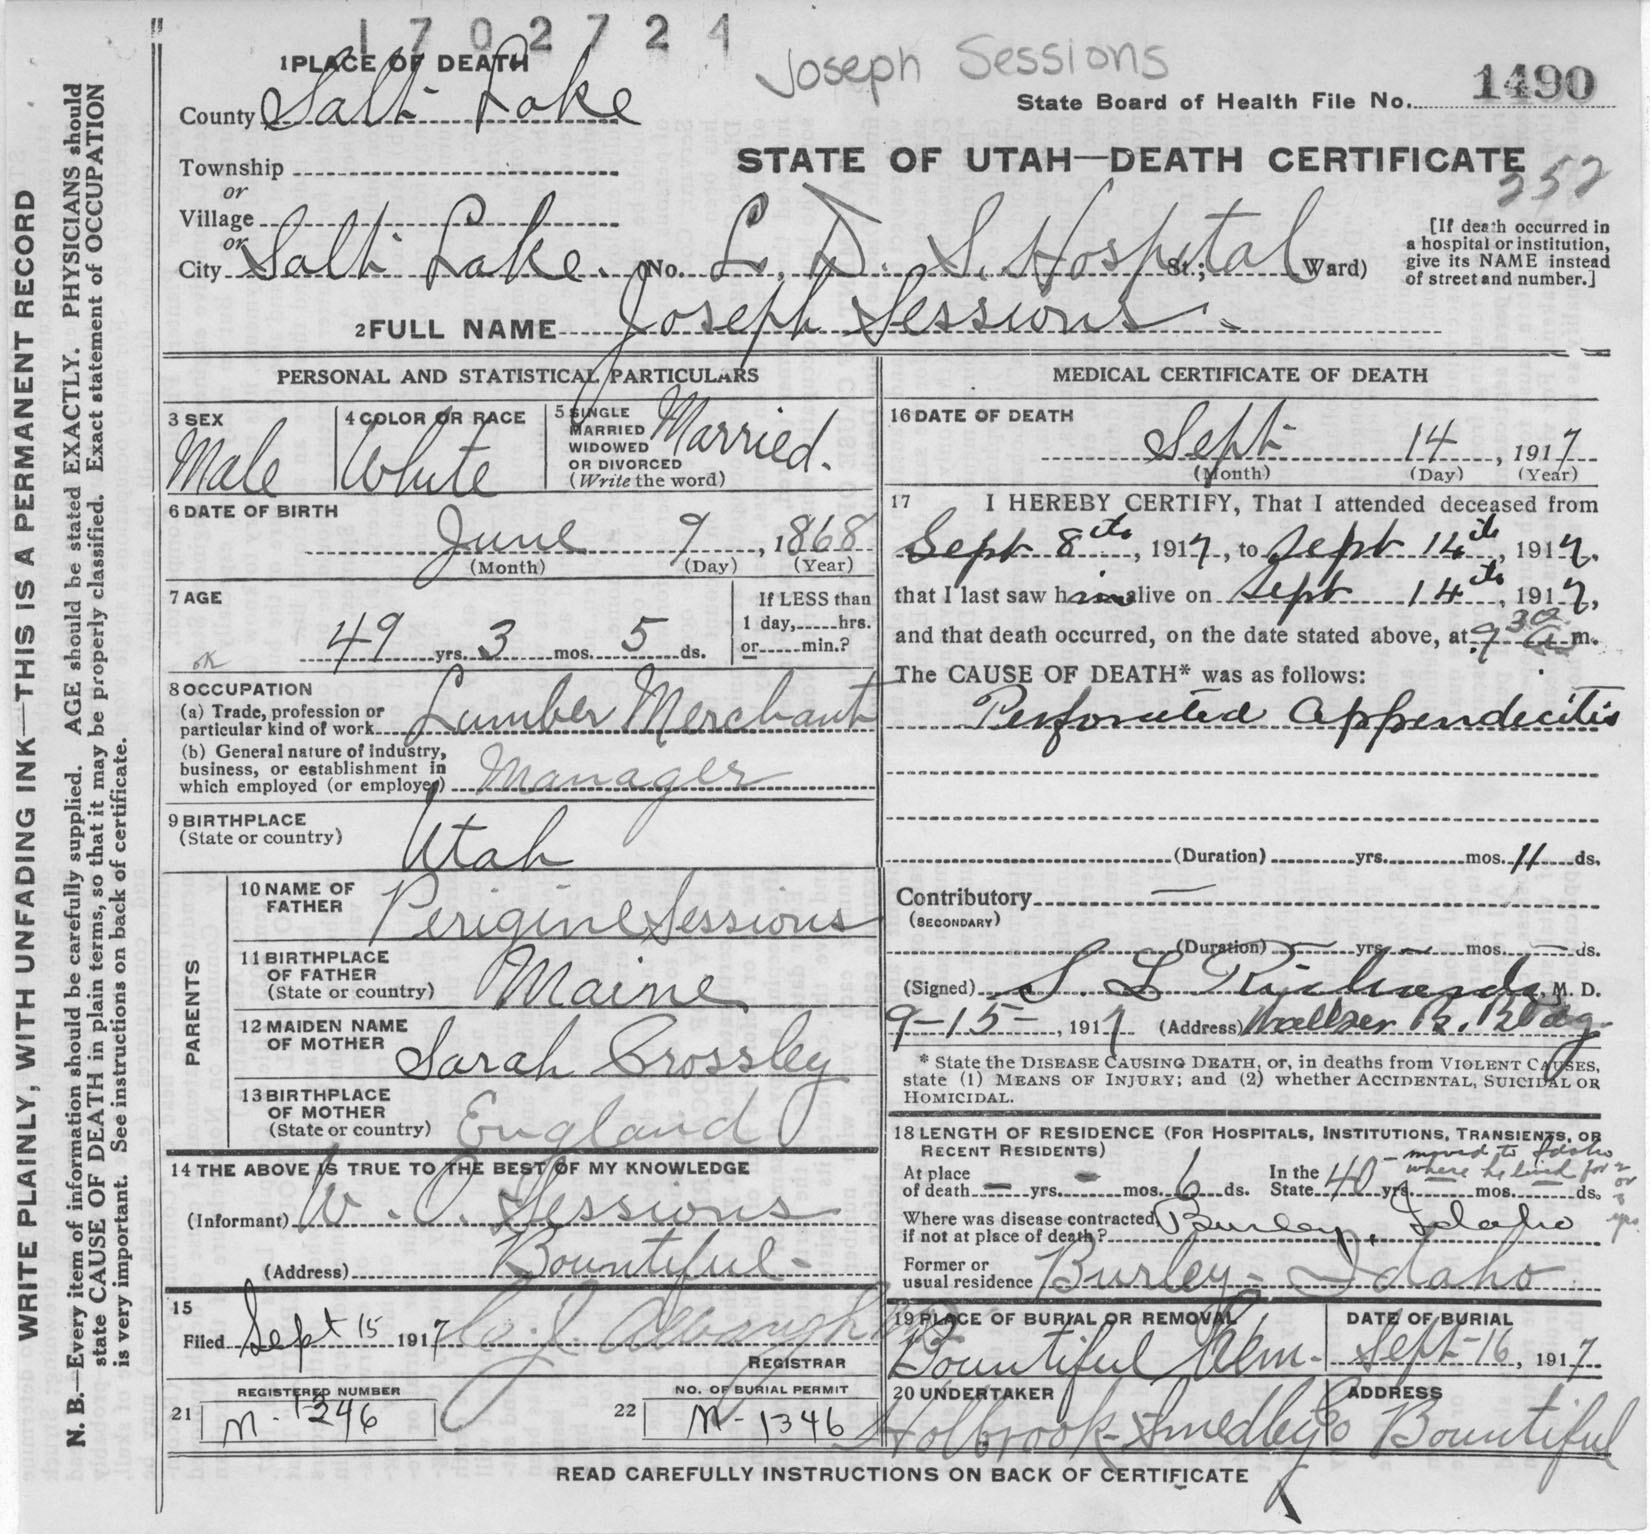 1702724
Joseph Sessions
1 PLACE OF DEATH
State Board of Health File No. 1490
County Salt Lake
STATE OF UTAH—DEATH CERTIFICATE
252
Township
or
Village
or
City Salt Lake. (No. L. D. S. Hospital St.; Ward)
[If death occurred in
a hospital or institution,
give its NAME instead
of street and number.]
2 FULL NAME Joseph Sessions
PERSONAL AND STATISTICAL PARTICULARS
3 SEX
Male
4 COLOR OR RACE
White
5 SINGLE
MARRIED
WIDOWED
OR DIVORCED
(Write the word)
Married.
6 DATE OF BIRTH
June 9, 1868
(Month) (Day) (Year)
7 AGE
49 yrs. 3 mos. 5 ds.
If LESS than
1 day, hrs.
or min.?
OK
8 OCCUPATION
(a) Trade, profession or
particular kind of work Lumber Merchant
(b) General nature of industry,
business, or establishment in
which employed (or employer) Manager
9 BIRTHPLACE
(State or country)
Utah
PARENTS
10 NAME OF
FATHER
Perigine Sessions
11 BIRTHPLACE
OF FATHER
(State or country)
Maine
12 MAIDEN NAME
OF MOTHER
Sarah Crossley
13 BIRTHPLACE
OF MOTHER
(State or country)
England
14 THE ABOVE IS TRUE TO THE BEST OF MY KNOWLEDGE
(Informant) W. O. Sessions
(Address) Bountiful
15
Filed Sept 15 1917
REGISTRAR
REGISTERED NUMBER
21 M-1346
NO. OF BURIAL PERMIT
22 M-1346
MEDICAL CERTIFICATE OF DEATH
16 DATE OF DEATH
Sept 14, 1917
(Month) (Day) (Year)
17 I HEREBY CERTIFY, That I attended deceased from
Sept 8th, 1917, to Sept 14th, 1917.
that I last saw him alive on Sept 14th, 1917,
and that death occurred, on the date stated above, at 9 30 a m.
The CAUSE OF DEATH* was as follows:
Perforated Appendicitis
(Duration) yrs. mos. 11 ds.
Contributory —
(SECONDARY)
(Duration) — yrs. — mos. — ds.
(Signed) S. L. Richards, M. D.
9-15-, 1917 (Address) Walker B. Bldg
* State the DISEASE CAUSING DEATH, or, in deaths from VIOLENT CAUSES,
state (1) MEANS OF INJURY; and (2) whether ACCIDENTAL, SUICIDAL OR
HOMICIDAL.
18 LENGTH OF RESIDENCE (FOR HOSPITALS, INSTITUTIONS, TRANSIENTS, OR
RECENT RESIDENTS)
At place
of death — yrs. — mos. 6 ds.
In the
State 40 yrs. mos. ds.
- moved to Idaho
where he lived for 2
or
3
yrs.
Where was disease contracted,
if not at place of death? Burley, Idaho
Former or
usual residence Burley - Idaho
19 PLACE OF BURIAL OR REMOVAL
Bountiful Cem.
DATE OF BURIAL
Sept-16, 1917
20 UNDERTAKER
Holbrook-Smedley Co
ADDRESS
Bountiful
READ CAREFULLY INSTRUCTIONS ON BACK OF CERTIFICATE
WRITE PLAINLY, WITH UNFADING INK—THIS IS A PERMANENT RECORD
N. B.—Every item of information should be carefully supplied. AGE should be stated EXACTLY. PHYSICIANS should
state CAUSE OF DEATH in plain terms, so that it may be properly classified. Exact statement of OCCUPATION
is very important. See instructions on back of certificate.